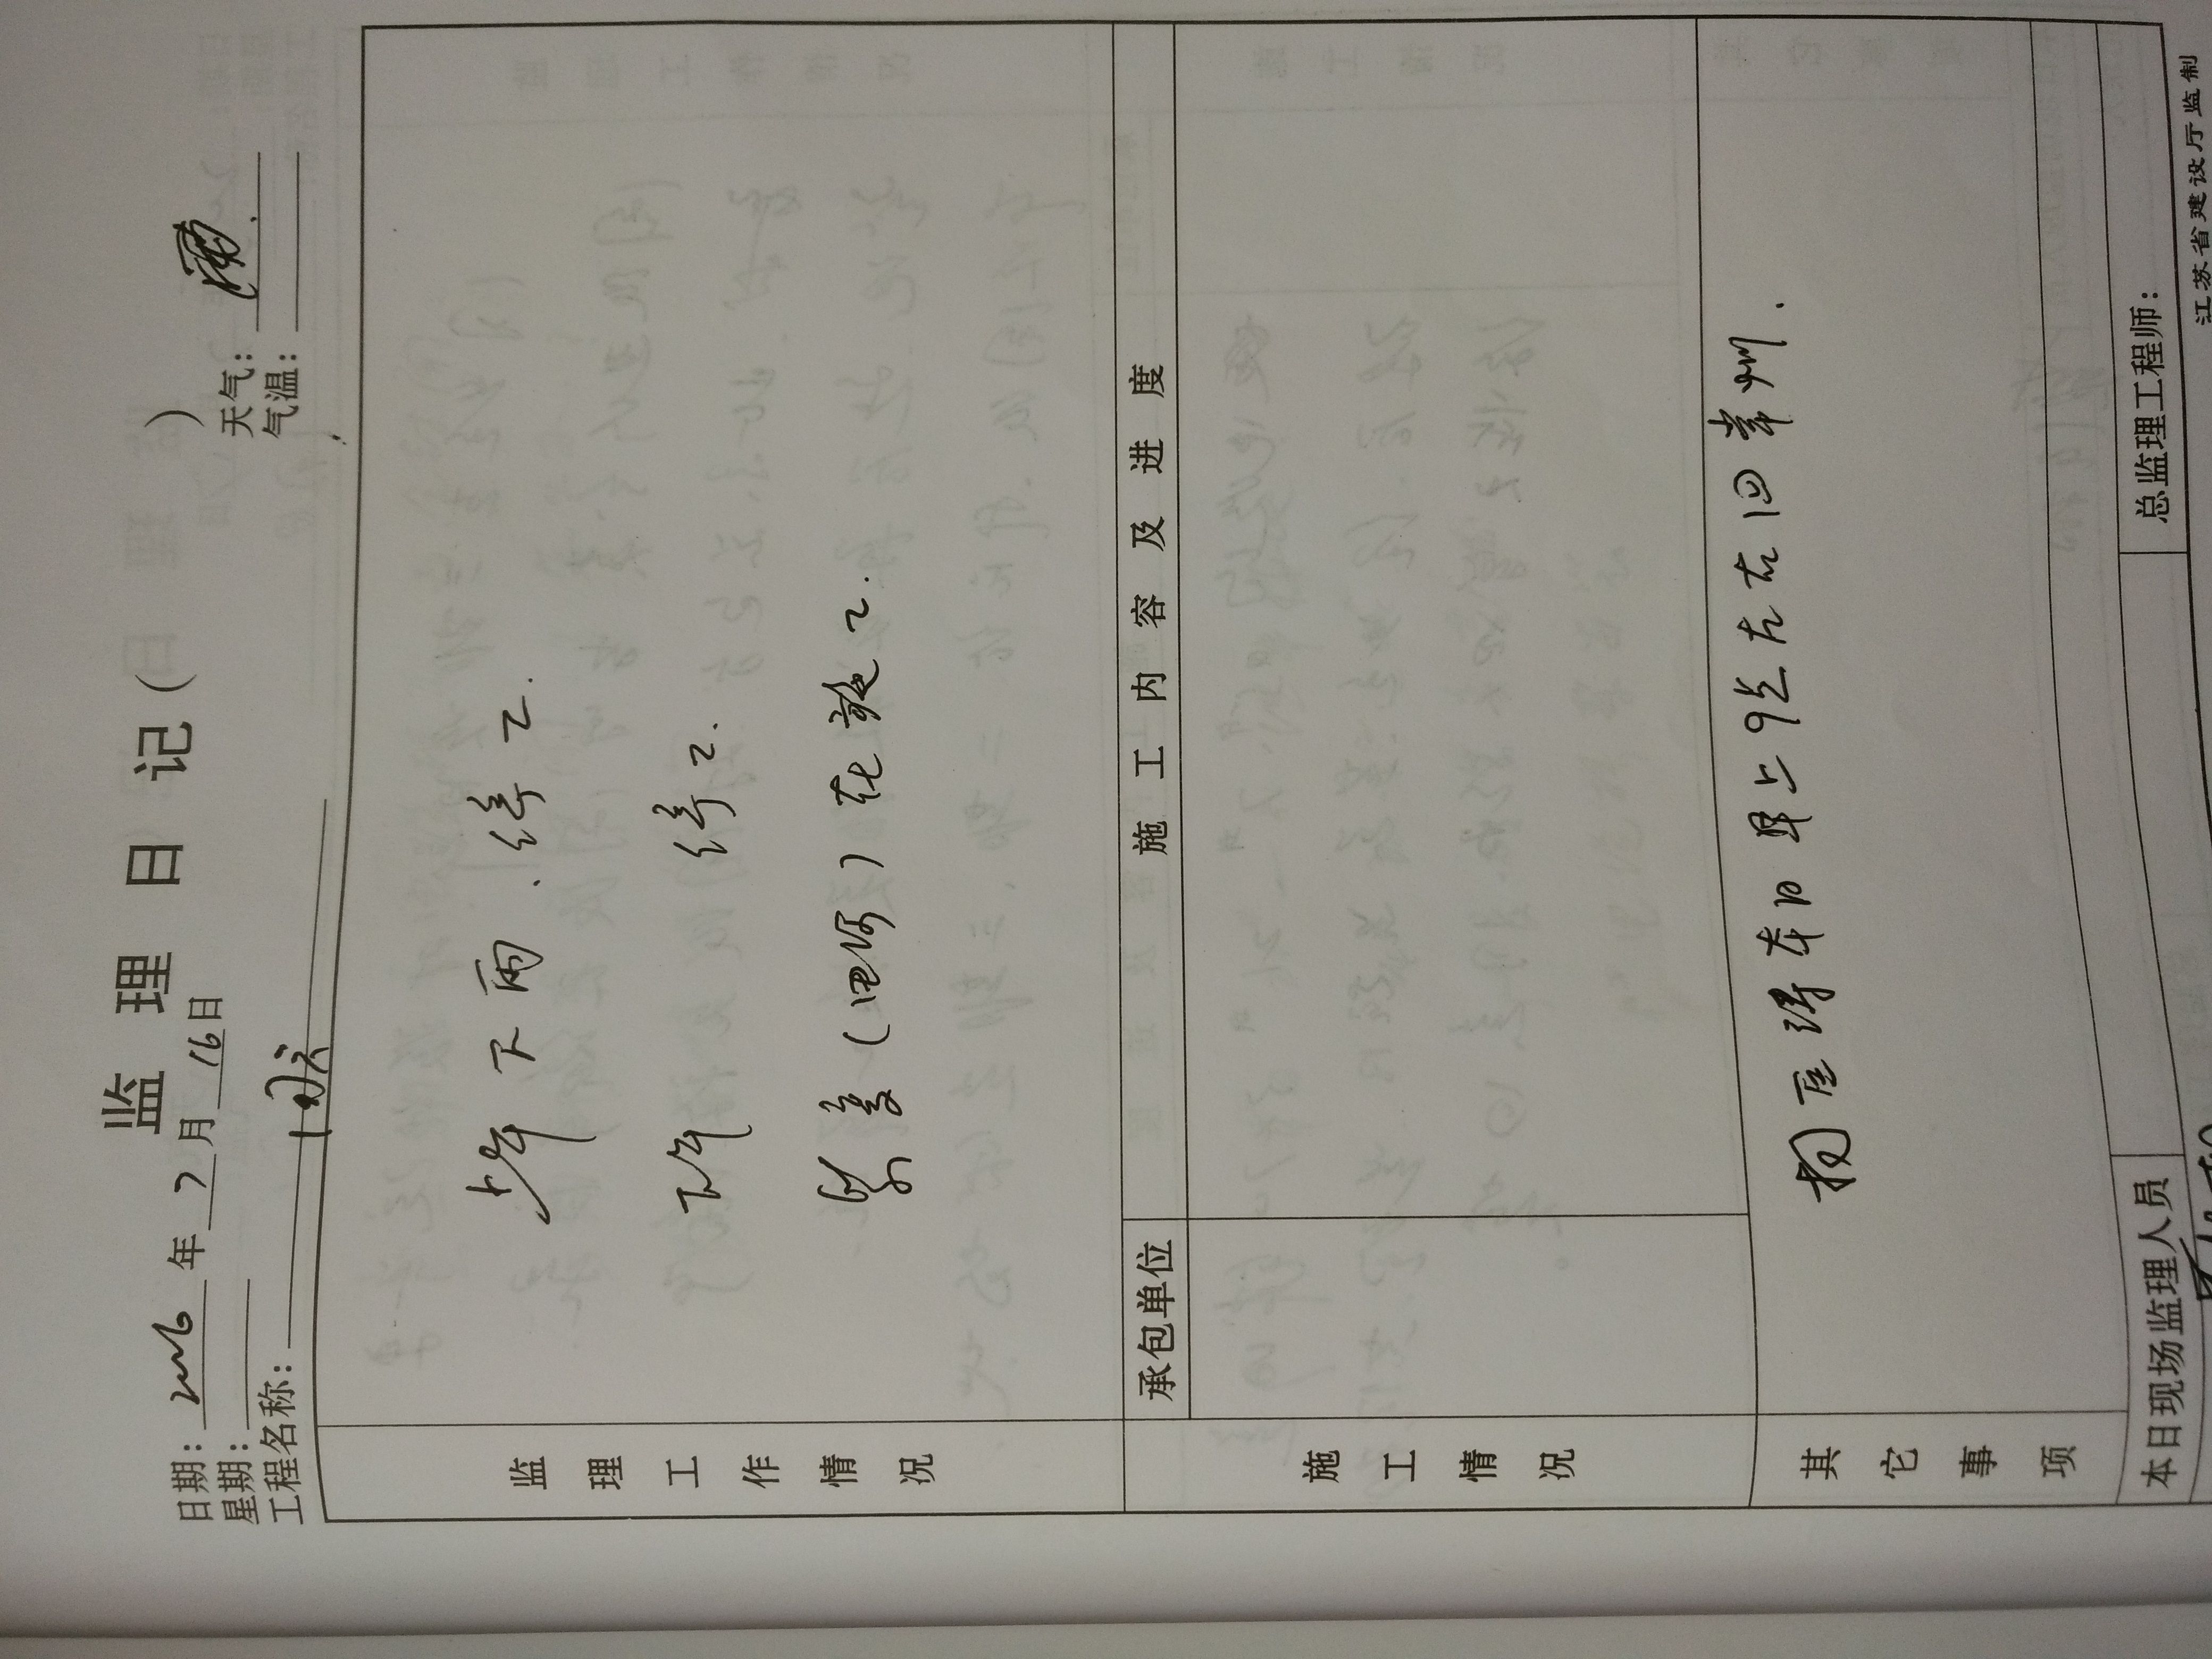 监理日记( )
日期: 2016 年 7 月 16 日 天气: 雨.
星期: 气温:
工程名称: 周六
监理工作情况
上午下雨.停工.
下午 停工.
(四好)在施工.
承包单位 施工内容及进度
施工情况
其它事项
本日早上9点左右回常州.
本日现场监理人员 总监理工程师:
江苏省建设厅监制